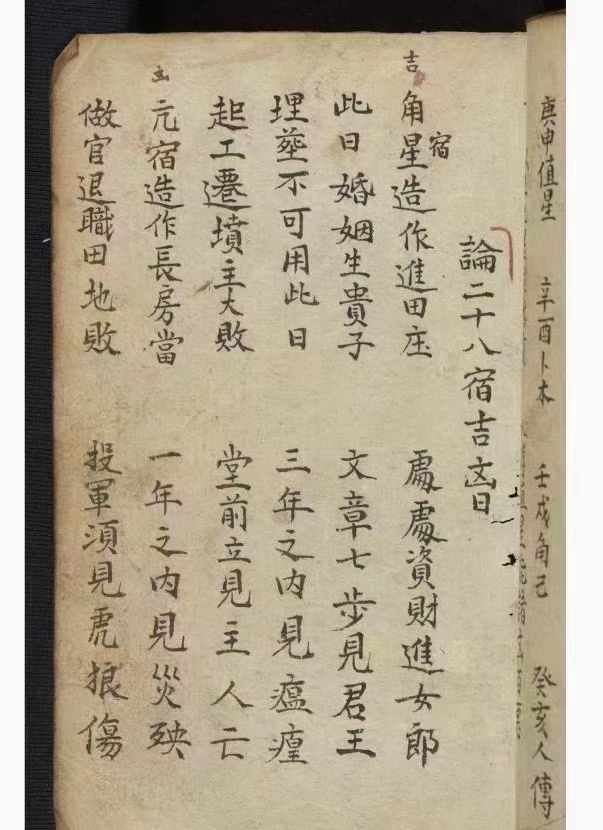 庚申值星 辛酉卜木 壬戌角己 癸亥人傳
論二十八宿吉凶日
吉
角星造作進田庄 處處資財進女郎
宿
此日婚姻生貴子 文章七步見君王
埋葬不可用此日 三年之內見瘟㾮
起工遷墳主大敗 堂前立見主人亡
凶
亢宿造作長房當 一年之內見災殃
做官退職田地敗 投軍須見虎狼傷